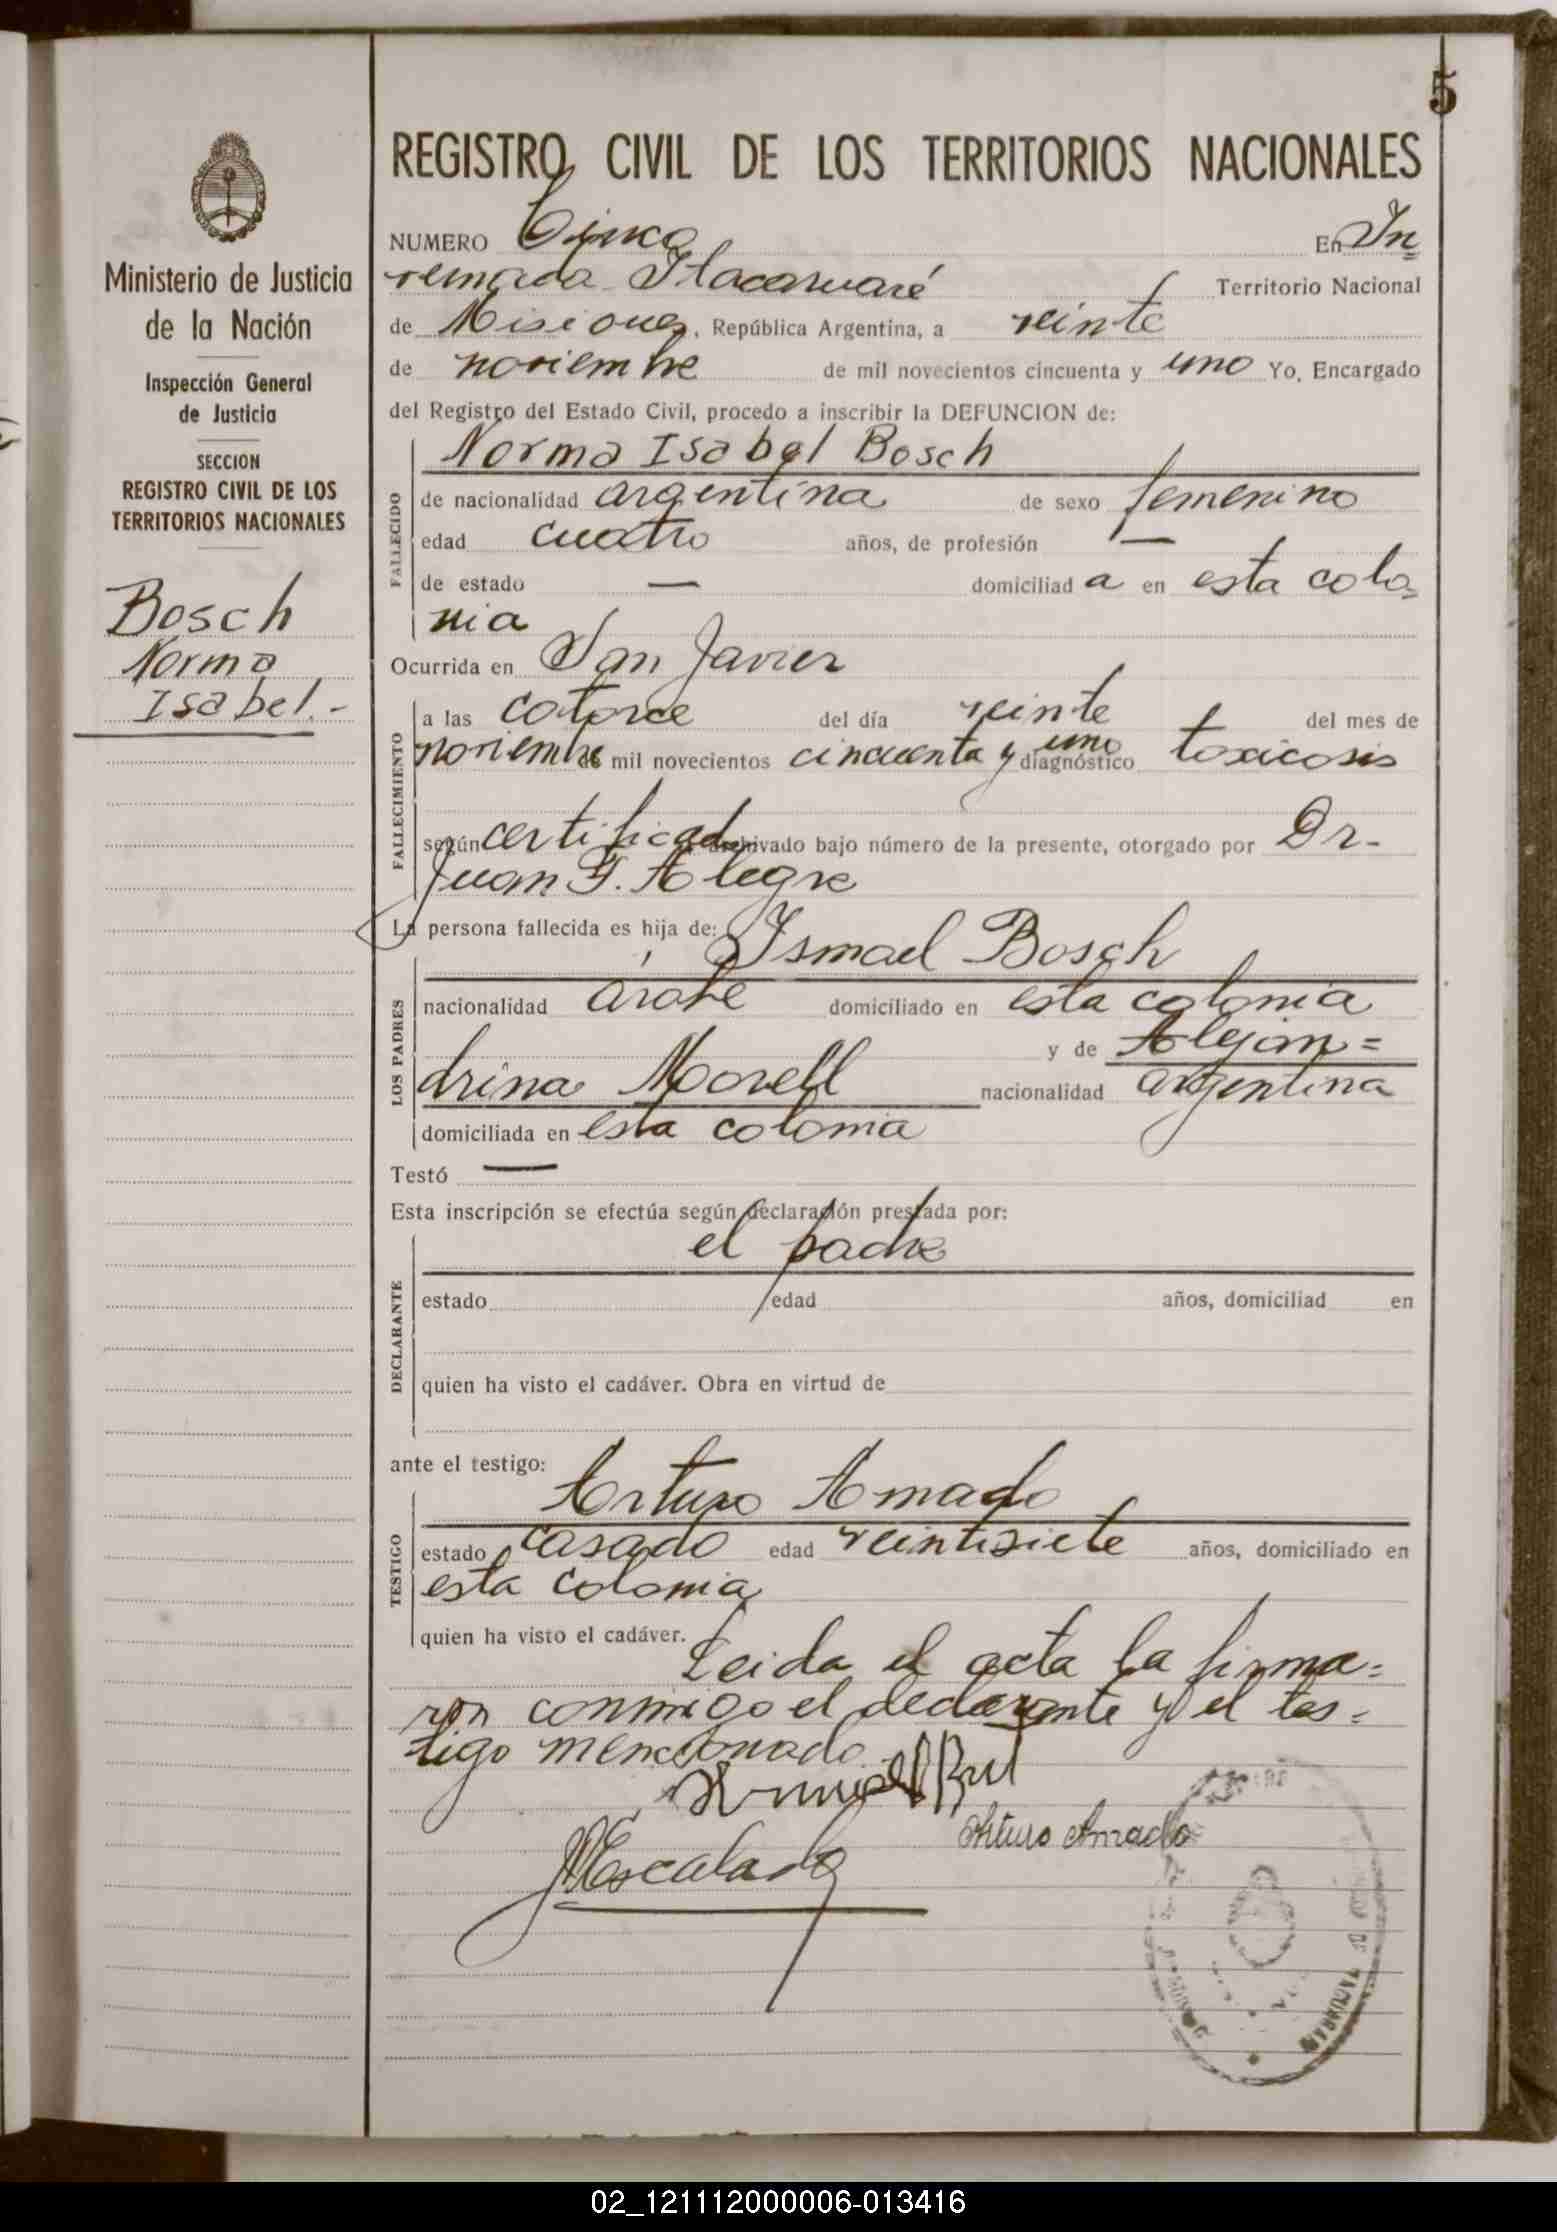 5
REGISTRO CIVIL DE LOS TERRITORIOS NACIONALES
Ministerio de Justicia
de la Nación
Inspección General
de Justicia
SECCION
REGISTRO CIVIL DE LOS
TERRITORIOS NACIONALES
Bosch
Norma
Isabel.-
NUMERO Cinco En In
vernada Itacaruaré Territorio Nacional
de Misiones, República Argentina, a veinte
de noviembre de mil novecientos cincuenta y uno Yo, Encargado
del Registro del Estado Civil, procedo a inscribir la DEFUNCION de:
FALLECIDO
Norma Isabel Bosch
de nacionalidad argentina de sexo femenino
edad cuatro años, de profesión —
de estado — domiciliad a en esta colo=
nia
Ocurrida en San Javier
FALLECIMIENTO
a las catorce del día veinte del mes de
noviembre de mil novecientos cincuenta y uno diagnóstico toxicosis
según certificado archivado bajo número de la presente, otorgado por Dr.
Juan F. Alegre
La persona fallecida es hija de:
LOS PADRES
Ismael Bosch
nacionalidad árabe domiciliado en esta colonia
y de Alejan=
drina Morell nacionalidad argentina
domiciliada en esta colonia
Testó —
Esta inscripción se efectúa según declaración prestada por:
DECLARANTE
el padre
estado edad años, domiciliad en
quien ha visto el cadáver. Obra en virtud de
ante el testigo:
TESTIGO
Arturo Amado
estado casado edad veintisiete años, domiciliado en
esta colonia
quien ha visto el cadáver. Leida el acta la firma=
ron conmigo el declarante y el tes=
tigo mencionado.
Arturo Amado
Escalada
02_121112000006-013416